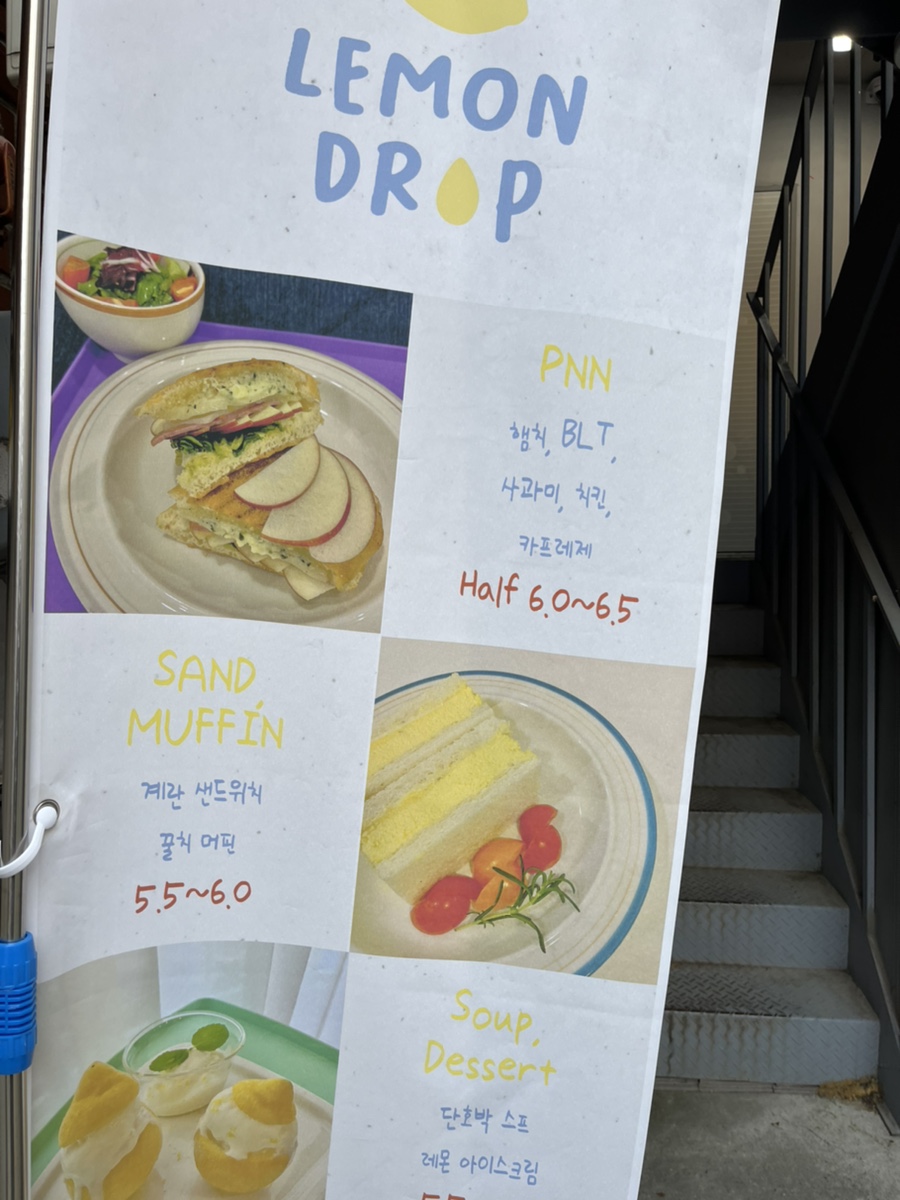 LEMON
DROP
PNN
햄치, BLT,
사과미, 치킨,
카프레제
Half 6.0~6.5
SAND
MUFFIN
계란 샌드위치
꿀치 머핀
5.5~6.0
Soup,
Dessert
단호박 스프
레몬 아이스크림